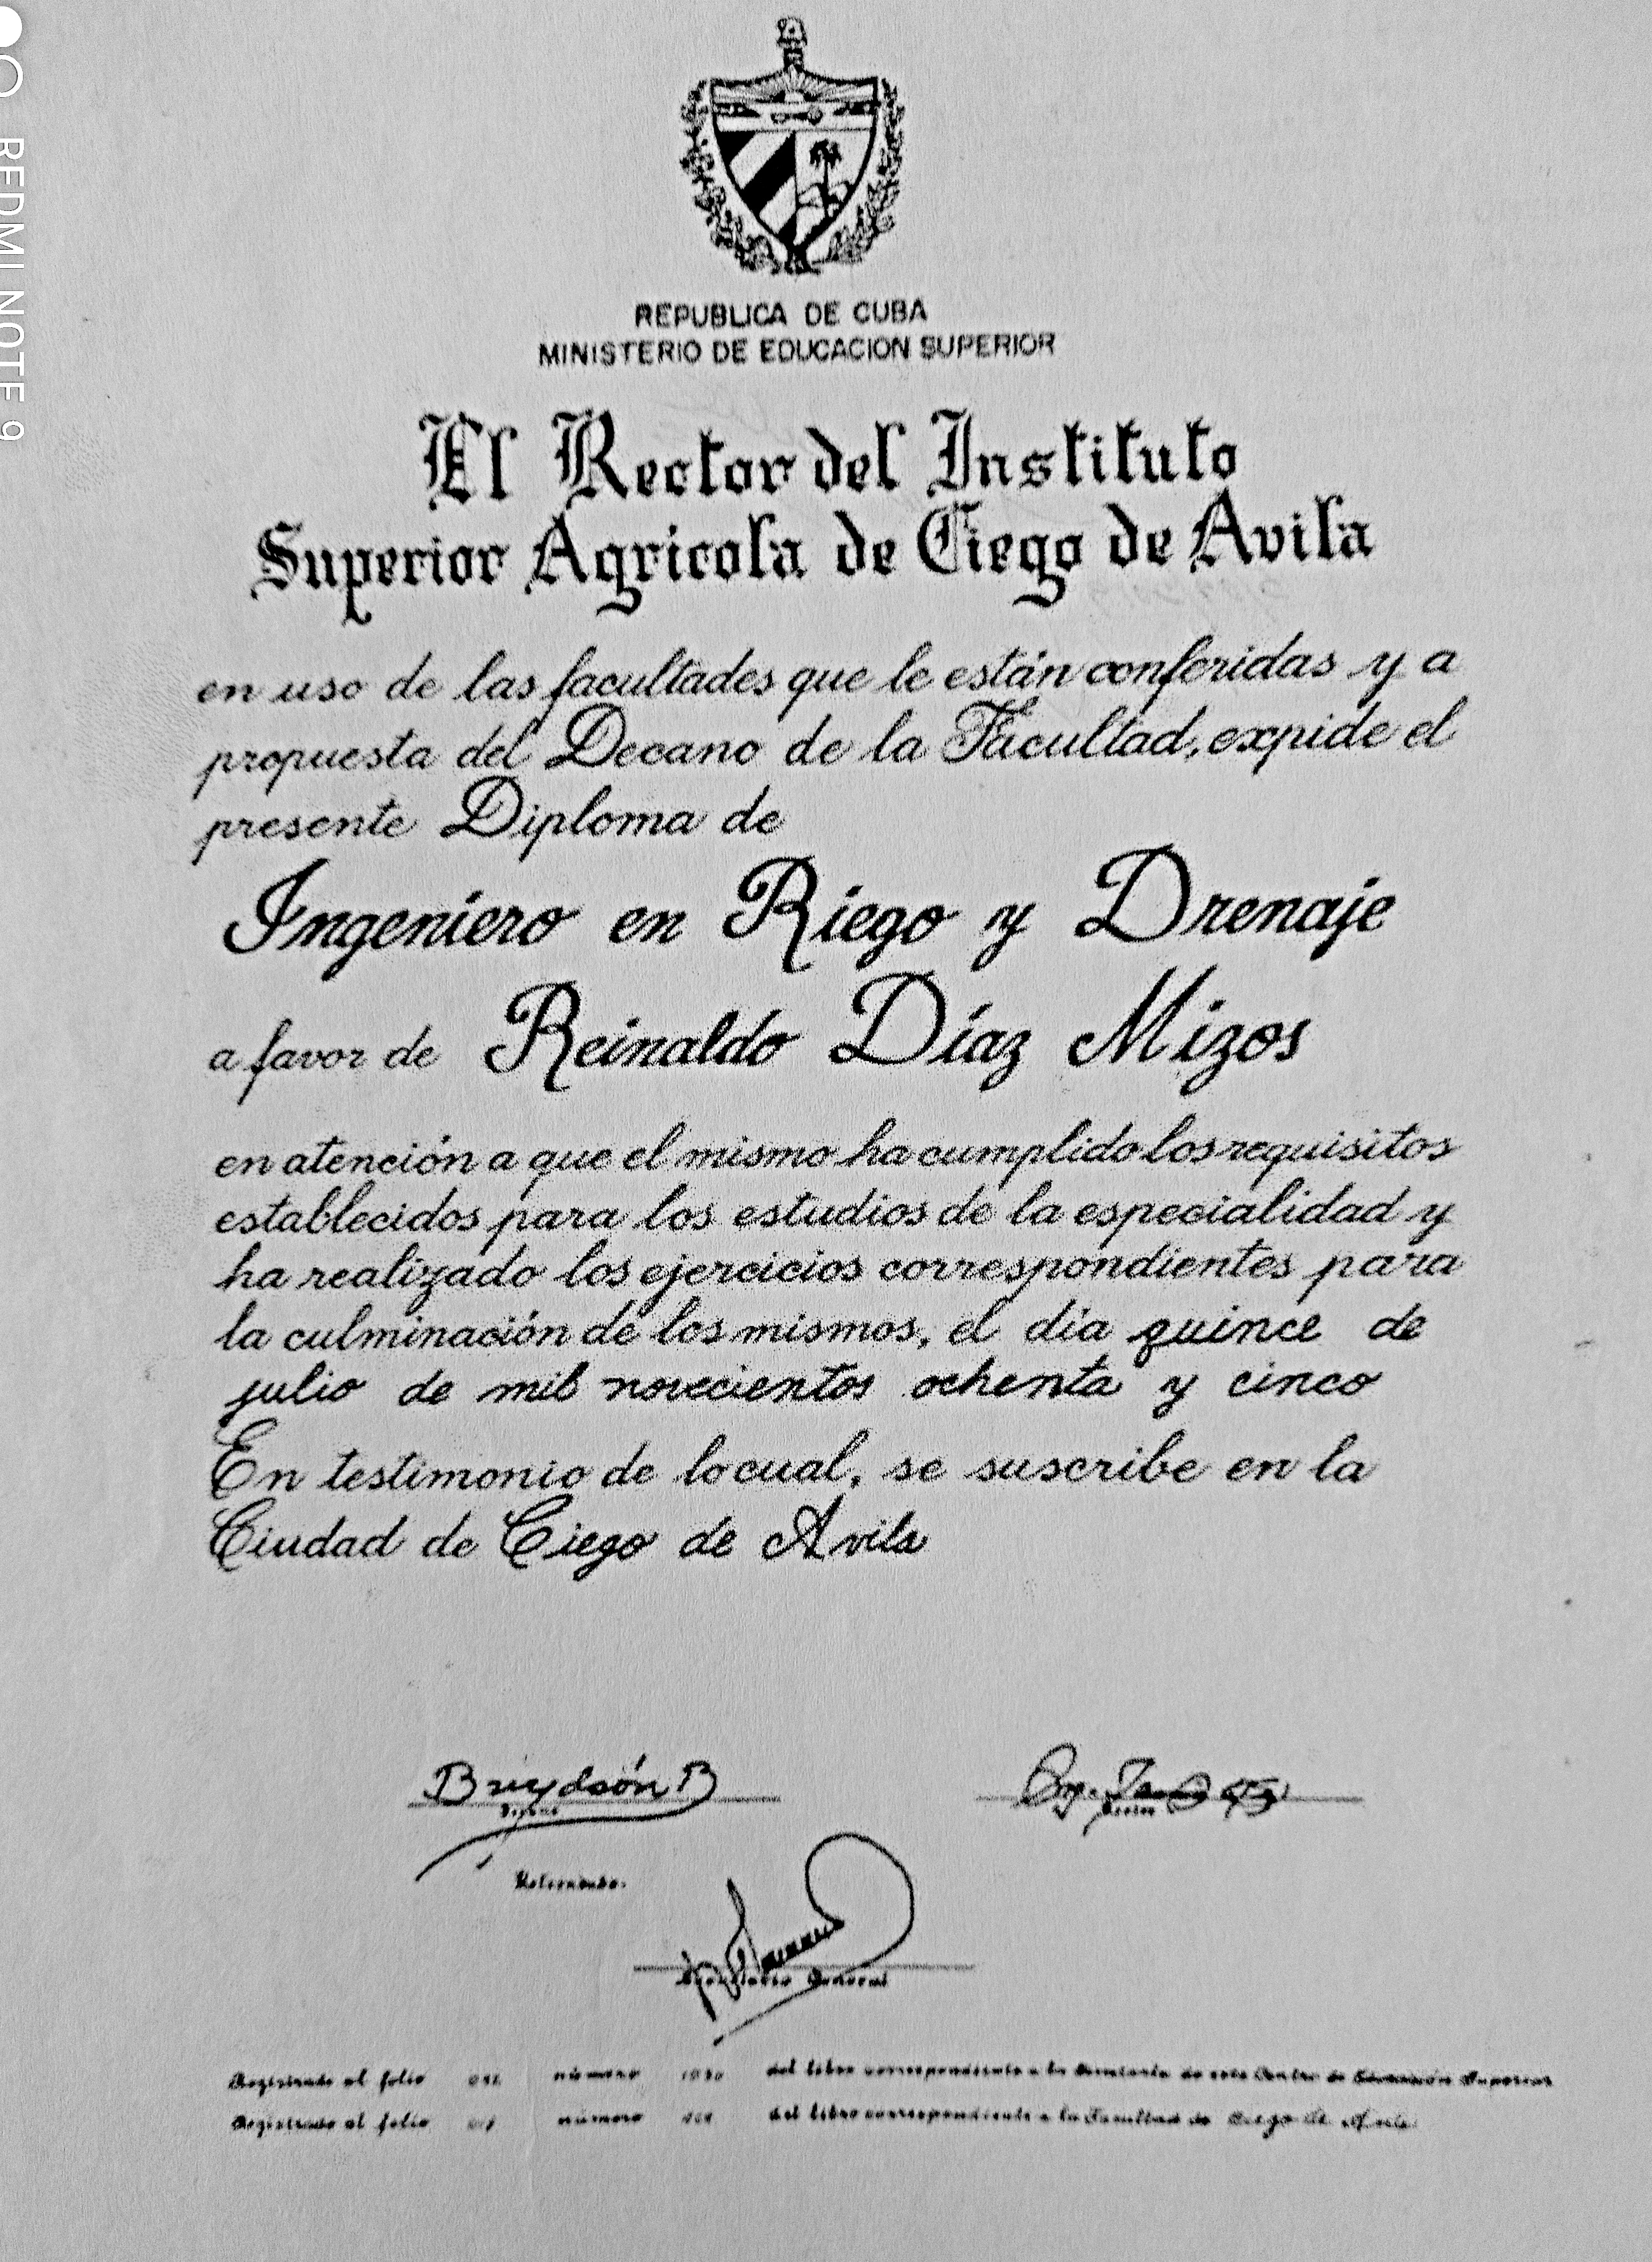 REPUBLICA DE CUBA
MINISTERIO DE EDUCACION SUPERIOR
El Rector del Instituto
Superior Agricola de Ciego de Avila
en uso de las facultades que le están conferidas y a
propuesta del Decano de la Facultad, expide el
presente Diploma de
Ingeniero en Riego y Drenaje
a favor de Reinaldo Díaz Mizos
en atención a que el mismo ha cumplido los requisitos
establecidos para los estudios de la especialidad y
ha realizado los ejercicios correspondientes para
la culminación de los mismos, el día quince de
julio de mil novecientos ochenta y cinco
En testimonio de lo cual, se suscribe en la
Ciudad de Ciego de Avila
Decano
Rector
Refrendado.
Secretario General
Registrado al folio número del libro correspondiente a la Secretaría de este Centro de Educación Superior
Registrado al folio número del libro correspondiente a la Facultad de Ciego de Avila
REDMI NOTE 9